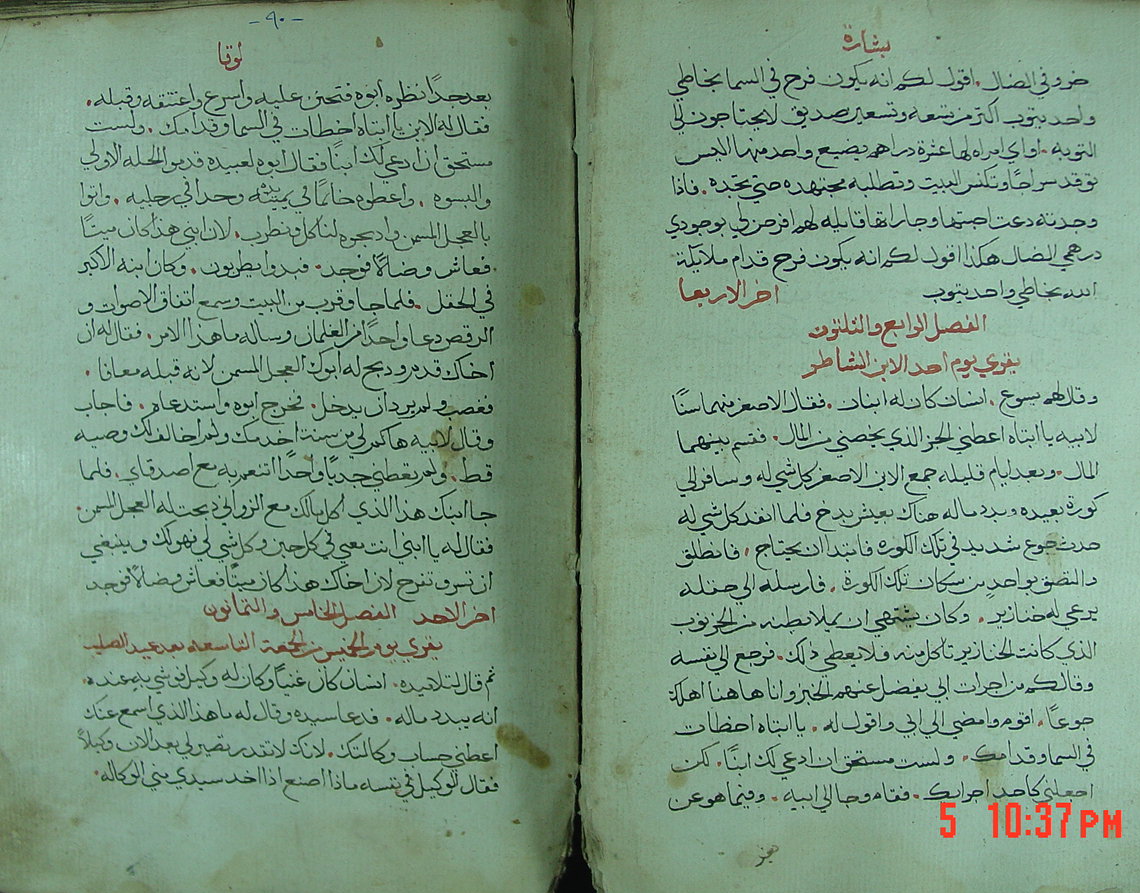 بشارة
خروفي الضال. اقول لكم انه يكون فرح في السما بخاطي
واحد يتوب اكتر من تسعه وتسعين صديق لا يحتاجون الي
التوبه. او اي امراه لها عشرة دراهم يضيع واحد منها اليس
توقد سراجًا وتكنس البيت وتطلبه مجتهده حتي تجده. فاذا
وجدته دعت احبتها وجاراتها قايله لهم افرحن لي بوجودي
درهمي الضال هكذا اقول لكم انه يكون فرح قدام ملايكة
الله بخاطي واحد يتوب اخر الاربعا
الفصل الرابع والثلثون
يقري يوم احد الابن الشاطر
وقال لهم يسوع. انسان كان له ابنان. فقال الاصغر منهما سنًا
لابيه يا ابتاه اعطني الجز الذي يخصني من المال. فقسم بينهما
المال. وبعد ايام قليله جمع الابن الاصغر كل شي له وسافر الي
كورة بعيده وبدد ماله هناك بعيش بذخ فلما انفد كل شي له
حدث جوع شديد في تلك الكوره فابتدا ان يحتاج. فانطلق
والتصق بواحد من سكان تلك الكورة. فارسله الي حقله
يرعي له خنازير. وكان يشتهي ان يملا بطنه من الخرنوب
الذي كانت الخنازير تاكل منه فلا يعطي ذلك. فرجع الي نفسه
وقال كم من اجرات ابي يفضل عنهم الخبز وانا هاهنا اهلك
جوعًا. اقوم وامضي الي ابي واقول له. يا ابتاه اخطات
في السما وقدامك. ولست مستحق ان ادعي لك ابنًا. لكن
اجعلني كاحد اجرايك. فقام وجا الي ابيه. وفيما هو عن
بعد
- ٩٠ -
لوقا
بعد جدًا نظره ابوه فتحنن عليه واسرع واعتنقه وقبله.
فقال له الابن يا ابتاه اخطات في السما وقدامك. ولست
مستحق ان ادعي لك ابنًا فقال ابوه لعبيده قدموا الحله الاولي
والبسوه. واعطوه خاتمًا في يمينه وحدا في رجليه. واتوا
بالعجل المسمن واذبحوه لناكل ونطرب. لان ابني هذا كان ميتًا
فعاش وضالًا فوجد. فبدوا يطربون. وكان ابنه الاكبر
في الحقل. فلما جا وقرب من البيت وسمع اتفاق الاصوات و
الرقص دعا واحدًا من الغلمان وساله ما هذا الامر. فقال له ان
اخاك قدم وذبح له ابوك العجل المسمن لانه قبله معافا.
فغضب ولم يرد ان يدخل. فخرج ابوه واستدعاه. فاجاب
وقال لابيه ها كم لي من سنة اخدمك ولم اخالف لك وصيه
قط. ولم تعطني جديًا واحدًا اتنعم به مع اصدقاي. فلما
جا ابنك هذا الذي اكل مالك مع الزواني ذبحت له العجل المسمن.
فقال له يا ابني انت معي في كل حين وكل شي لي فهو لك وينبغي
ان تسر وتفرح لان اخاك هذا كان ميتًا فعاش وضالًا فوجد
اخر الاحد الفصل الخامس والتمانون
يقري يوم الخميس من الجمعة التاسعه بعد عيد الصليب
ثم قال لتلاميذه. انسان كان غنيًا وكان له وكيل فوشي به عنده.
انه يبدد ماله. فدعا سيده وقال له ما هذا الذي اسمع عنك
اعطني حساب وكالتك. لانك لا تقدر تصير لي بعد الان وكيلًا
فقال الوكيل في نفسه ماذا اصنع اذا اخد سيدي مني الوكاله.
5 10:37 PM